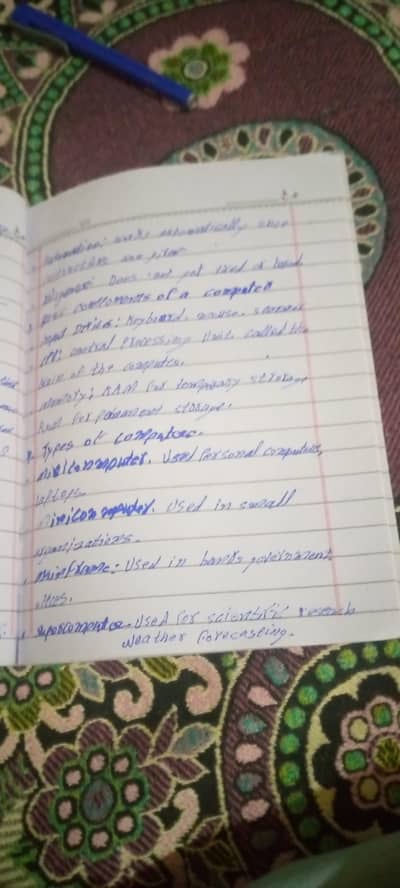 Automation: works automatically when
instruction are given
Diligence: Does not get tired or bored
components of a computer
input device: Keyboard, mouse, scanner
CPU: central Processing Unit, called the
brain of the computer.
memory: RAM For temporary storage
Rom For permanent storage.
Types of computer.
microcomputer. Used Personal computers,
laptops.
minicomputer. Used in small
organizations.
mainframe: Used in banks, government
Supercomputer. Used For scientific research
weather Forecasting.